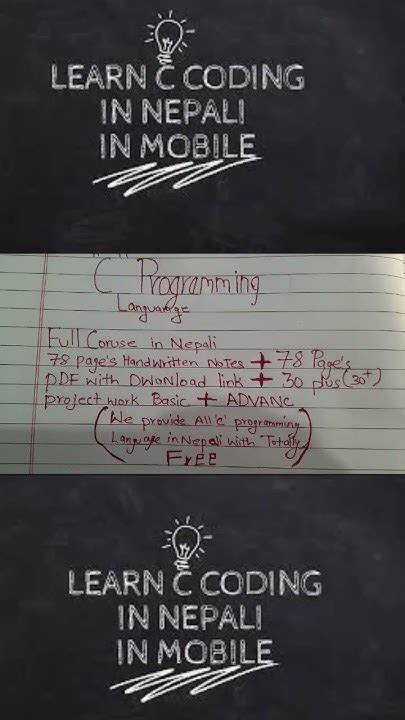 LEARN C CODING
IN NEPALI
IN MOBILE
"C" Programming
Languarge
Full Coruse in Nepali
78 page's Handwritten Notes + 78 Page's
PDF with DWonload link + 30 plus (30+)
project work Basic + ADVANC
(We provide All 'c' programming
Language in Nepali with Totally
FrEE)
LEARN C CODING
IN NEPALI
IN MOBILE